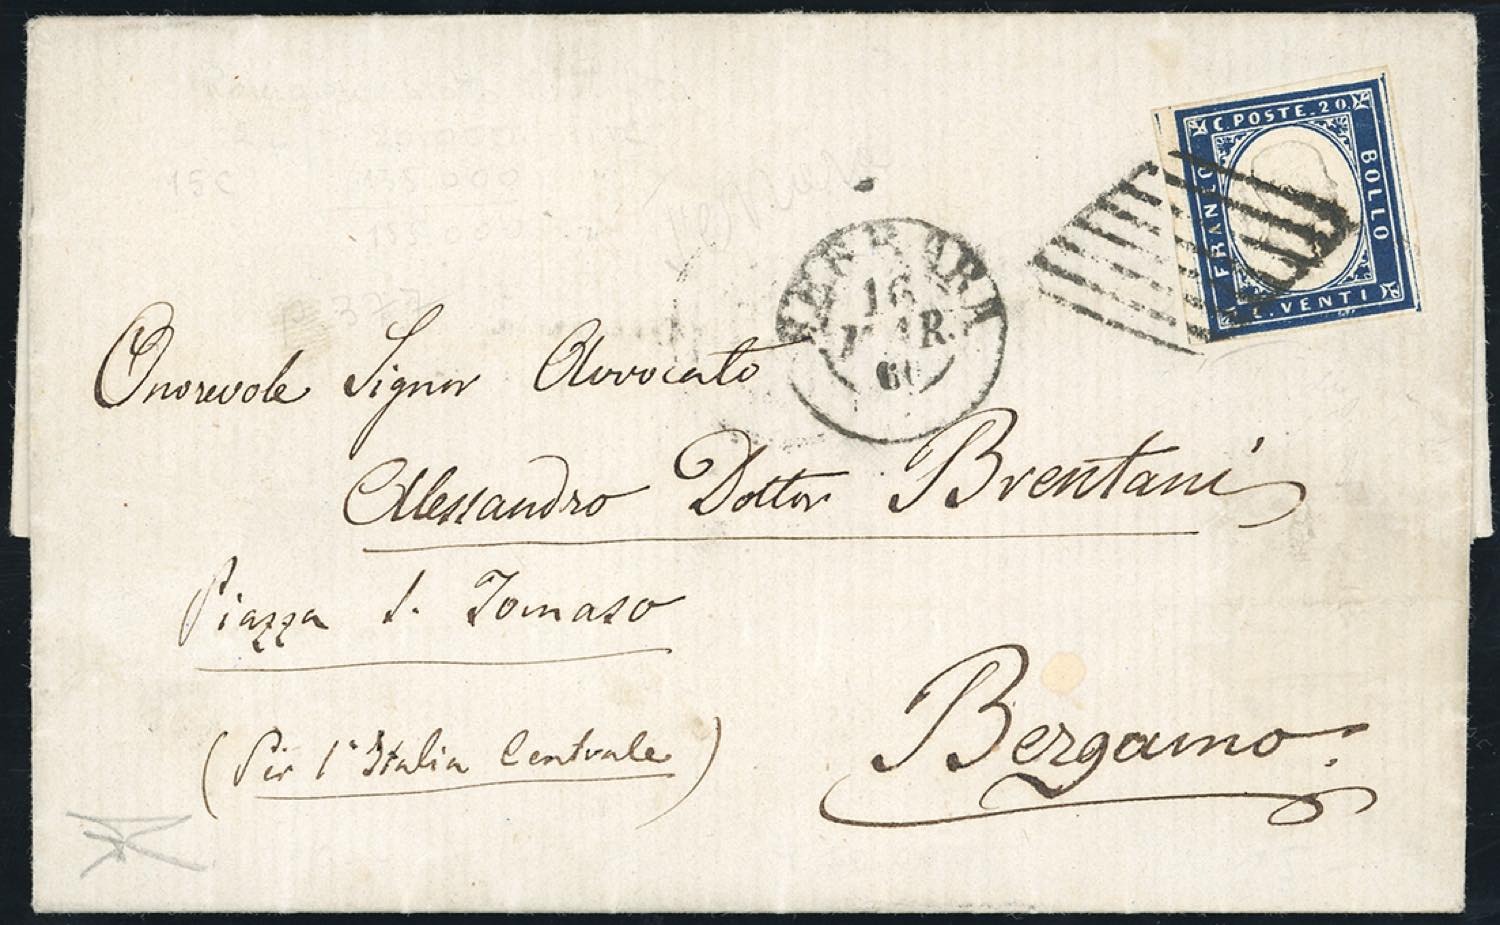 C. POSTE. 20.
FRANCO
BOLLO
C. VENTI
FERRARA
16
MAR.
60
15C
Onorevole Signor Avvocato
Alessandro Dottor Brentani
Piazza S. Tomaso
(Per l'Italia Centrale)
Bergamo.